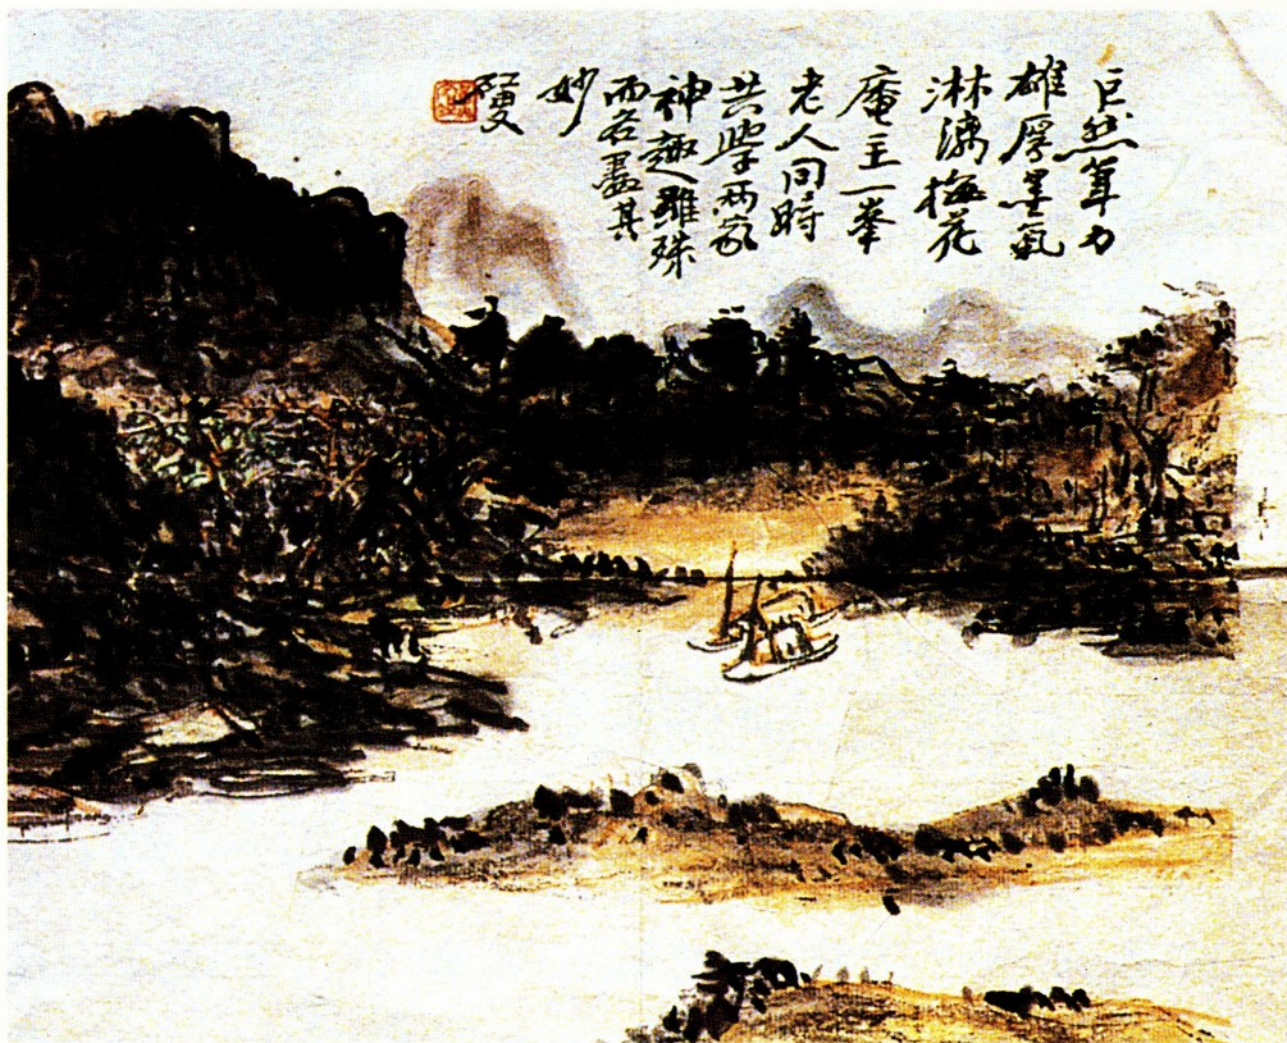 巨然筆力
雄厚墨氣
淋漓梅花
庵主一峯
老人同時
共學兩家
神趣雖殊
而各盡其
妙
虹叟